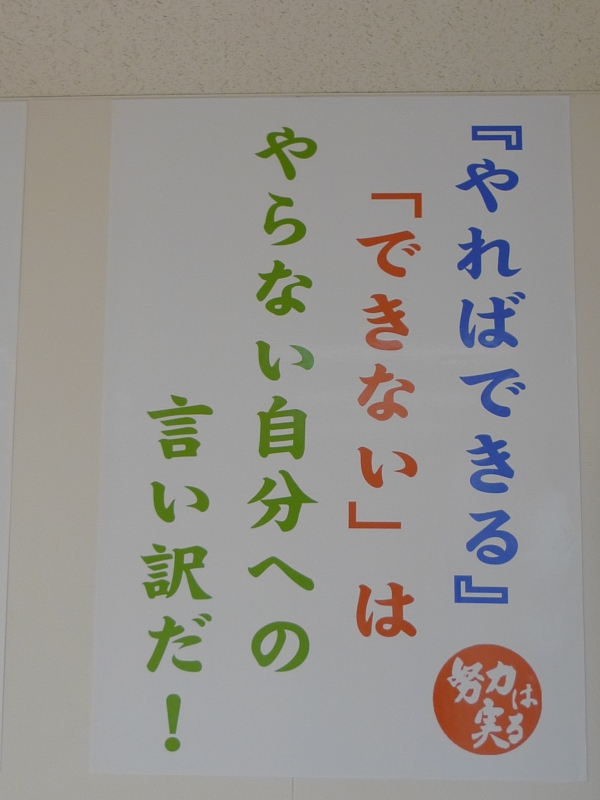 『やればできる』
「できない」は
やらない自分への
言い訳だ！
努力は
実る